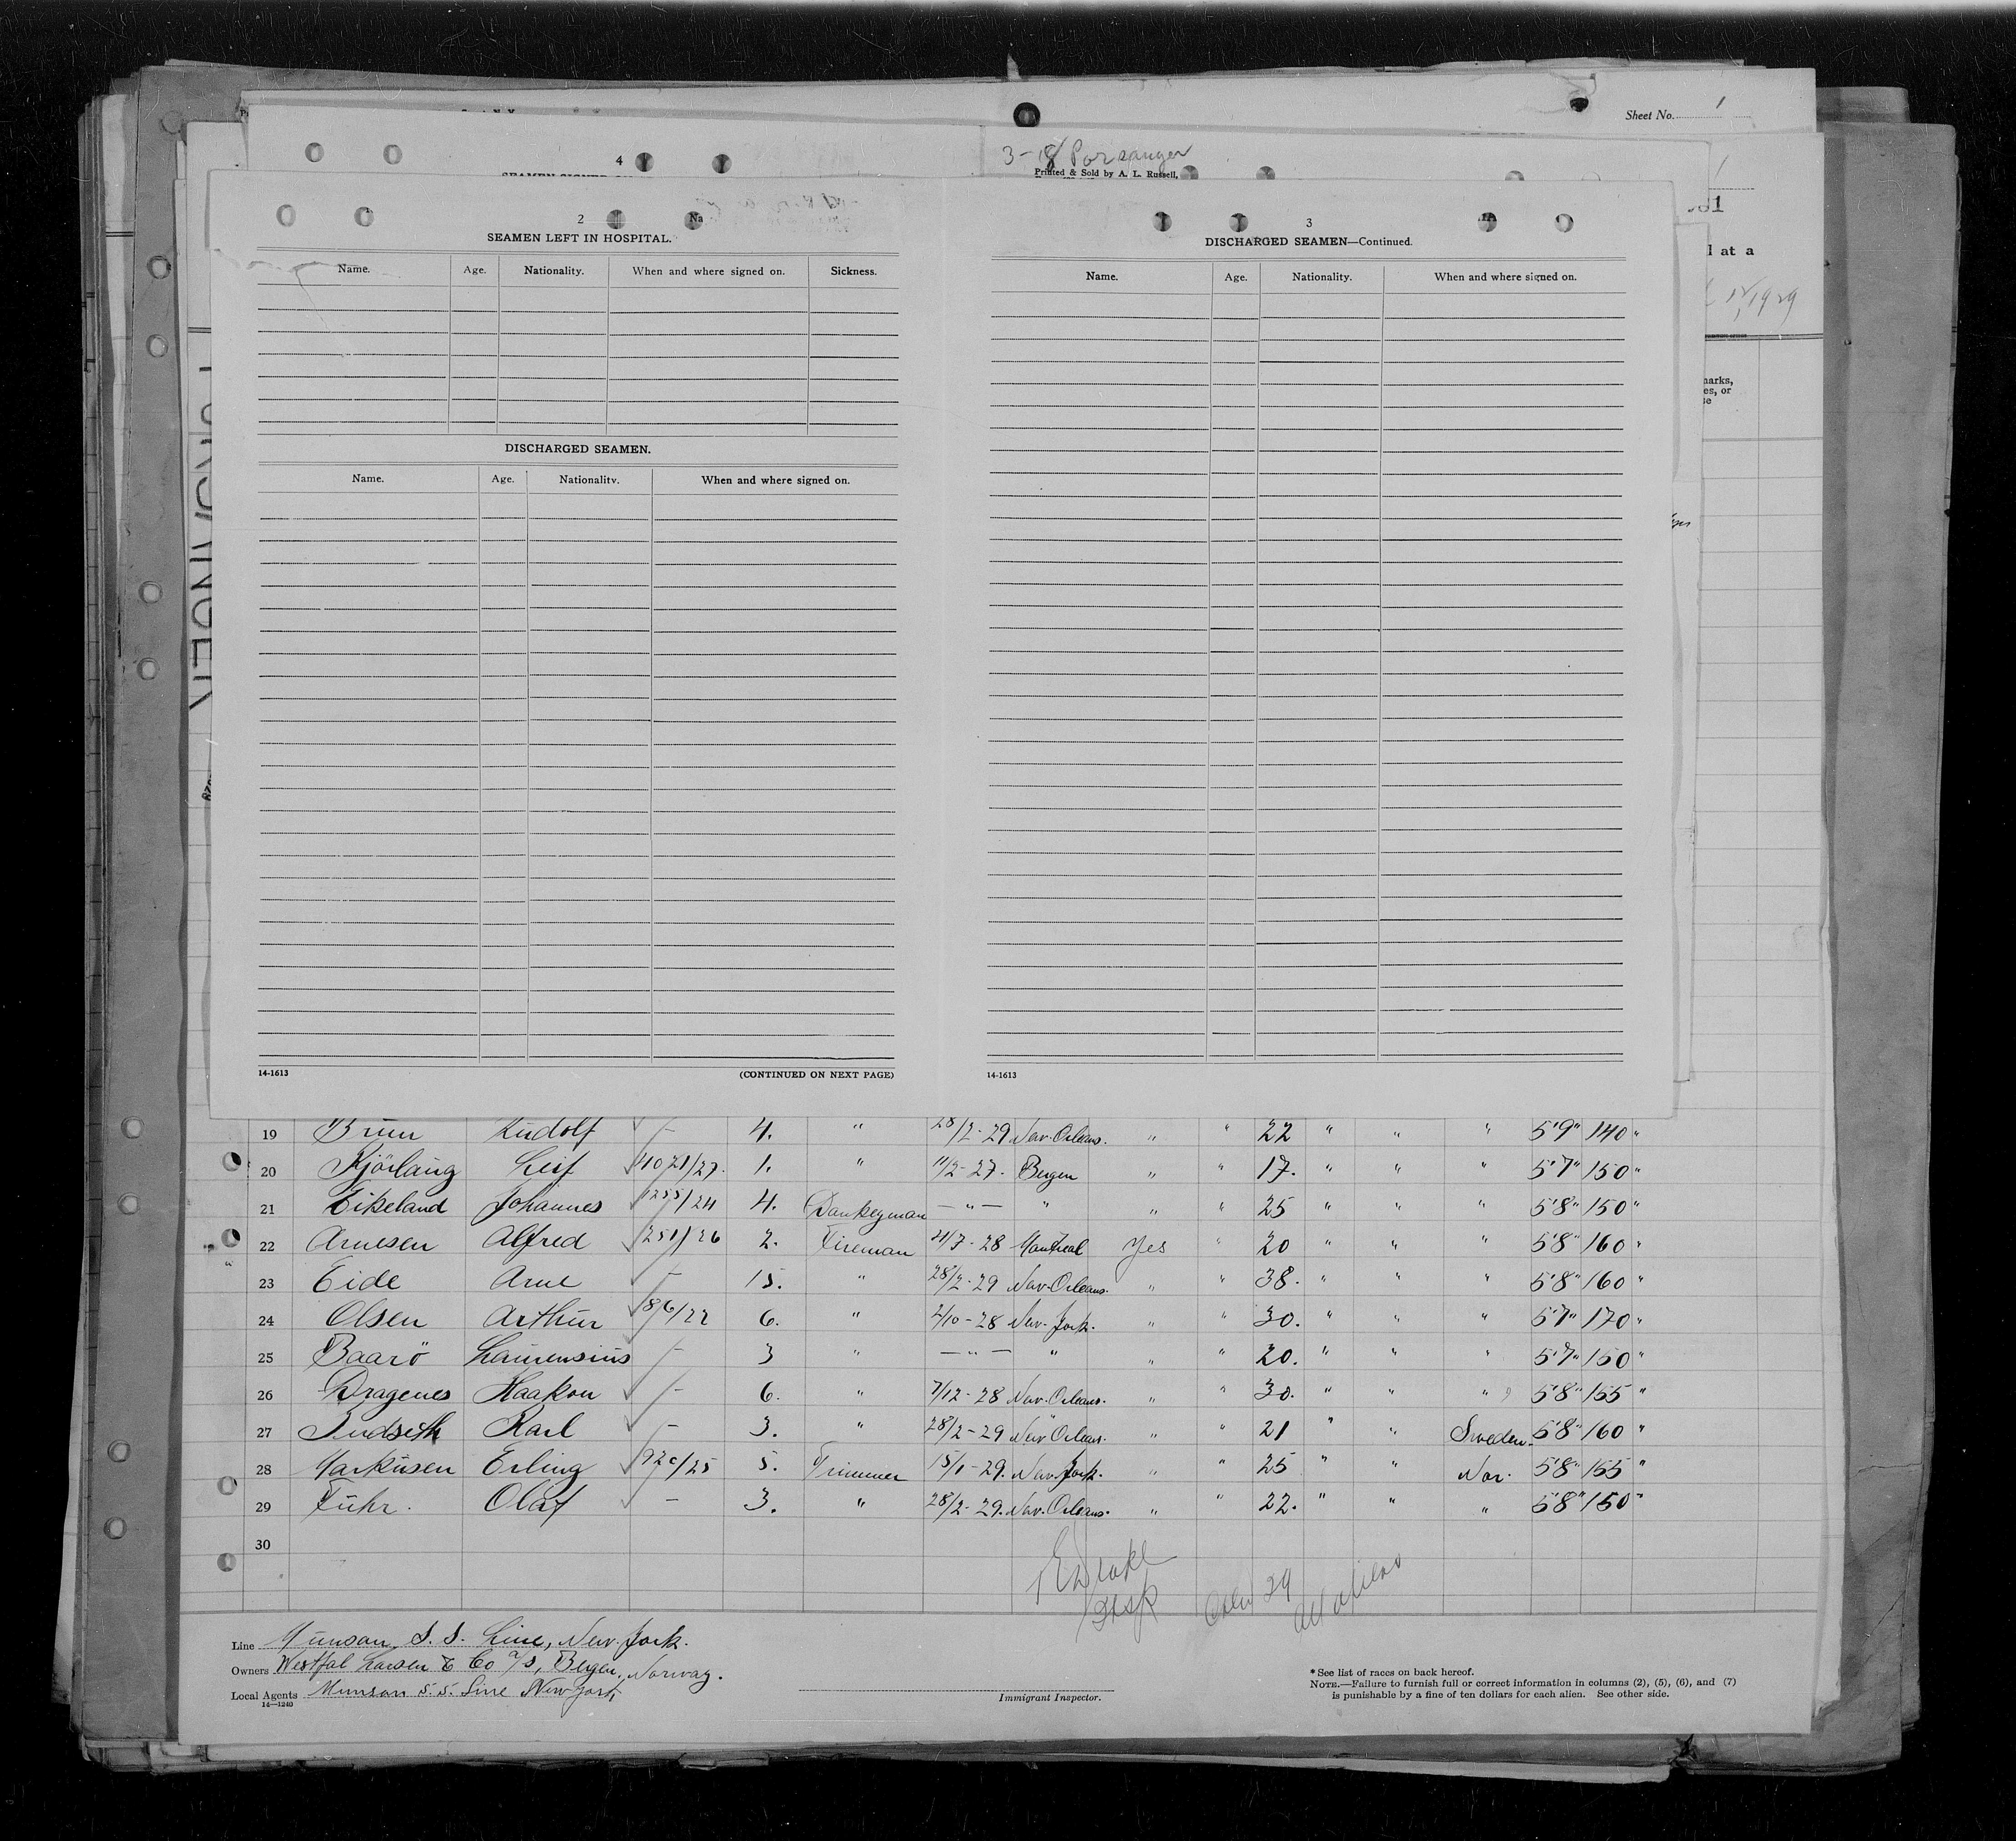 Sheet No. 1
3-18 Porsanger
4
Printed & Sold by A. L. Russell,
1
at a
1929
2
SEAMEN LEFT IN HOSPITAL.
Name. Age. Nationality. When and where signed on. Sickness.
DISCHARGED SEAMEN.
Name. Age. Nationality. When and where signed on.
14-1613 (CONTINUED ON NEXT PAGE)
3
DISCHARGED SEAMEN—Continued.
Name. Age. Nationality. When and where signed on.
14-1613
19 Brun Rudolf - 4. " 28/2-29 New-Orleans. " " 22 " " " 5'9" 140 "
20 Kjörlaug Leif 4071/27. 1. " 11/2-27. Bergen " " 17. " " " 5'7" 150 "
21 Eikeland Johannes 1255/24 4. Dankeyman — " — " " " 25 " " " 5'8" 150 "
22 Arnesen Alfred 251/26 2. Fireman 21/7-28 Montreal Yes " 20 " " " 5'8" 160 "
23 Eide Arne - 15. " 28/2-29 New-Orleans. " " 38. " " " 5'8" 160 "
24 Olsen Arthur 186/22 6. " 2/10-28 New-York. " " 30. " " " 5'7" 170 "
25 Baarö Laurensius - 3 " — " — " " " 20. " " " 5'7" 150 "
26 Dragenes Haakon - 6. " 7/12-28 New-Orleans. " " 30. " " " 5'8" 155 "
27 Indseth Karl - 3. " 28/2-29 New Orleans. " " 21 " " Sweden. 5'8" 160 "
28 Markusen Erling 920/25 5. Trimmer 15/1-29. New-York. " " 25 " " Nor. 5'8" 155 "
29 Fuhr. Olaf - 3. " 28/2-29. New-Orleans. " " 22. " " " 5'8" 150 "
30
29
Line Munson S. S. Line, New-York.
Owners Westfal Larsen & Co a/s, Bergen, Norway.
Local Agents Munson S. S. Line New York
14—1240
Immigrant Inspector.
* See list of races on back hereof.
NOTE.—Failure to furnish full or correct information in columns (2), (5), (6), and (7)
is punishable by a fine of ten dollars for each alien. See other side.